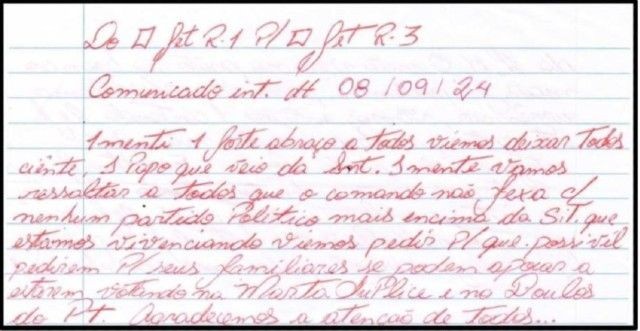 Do □ Jet R.1 P/ □ Jet R.3
Comunicado int. dt 08/09/24
1menti 1 forte abraço a Todos viemos deixar Todos
ciente, 1 Papo que veio da Snt. 1mente vamos
ressaltar a Todos que o comando não fexa c/
nenhum partido Politico mais encima da S.T. que
estamos vivenciando viemos pedir P/ que possivil
pedirem P/ seus familiares se podem apoiar a
esterem votando na Marta SuPlice e no Boulos
do Pt. Agradecemos a atencão de Todos...